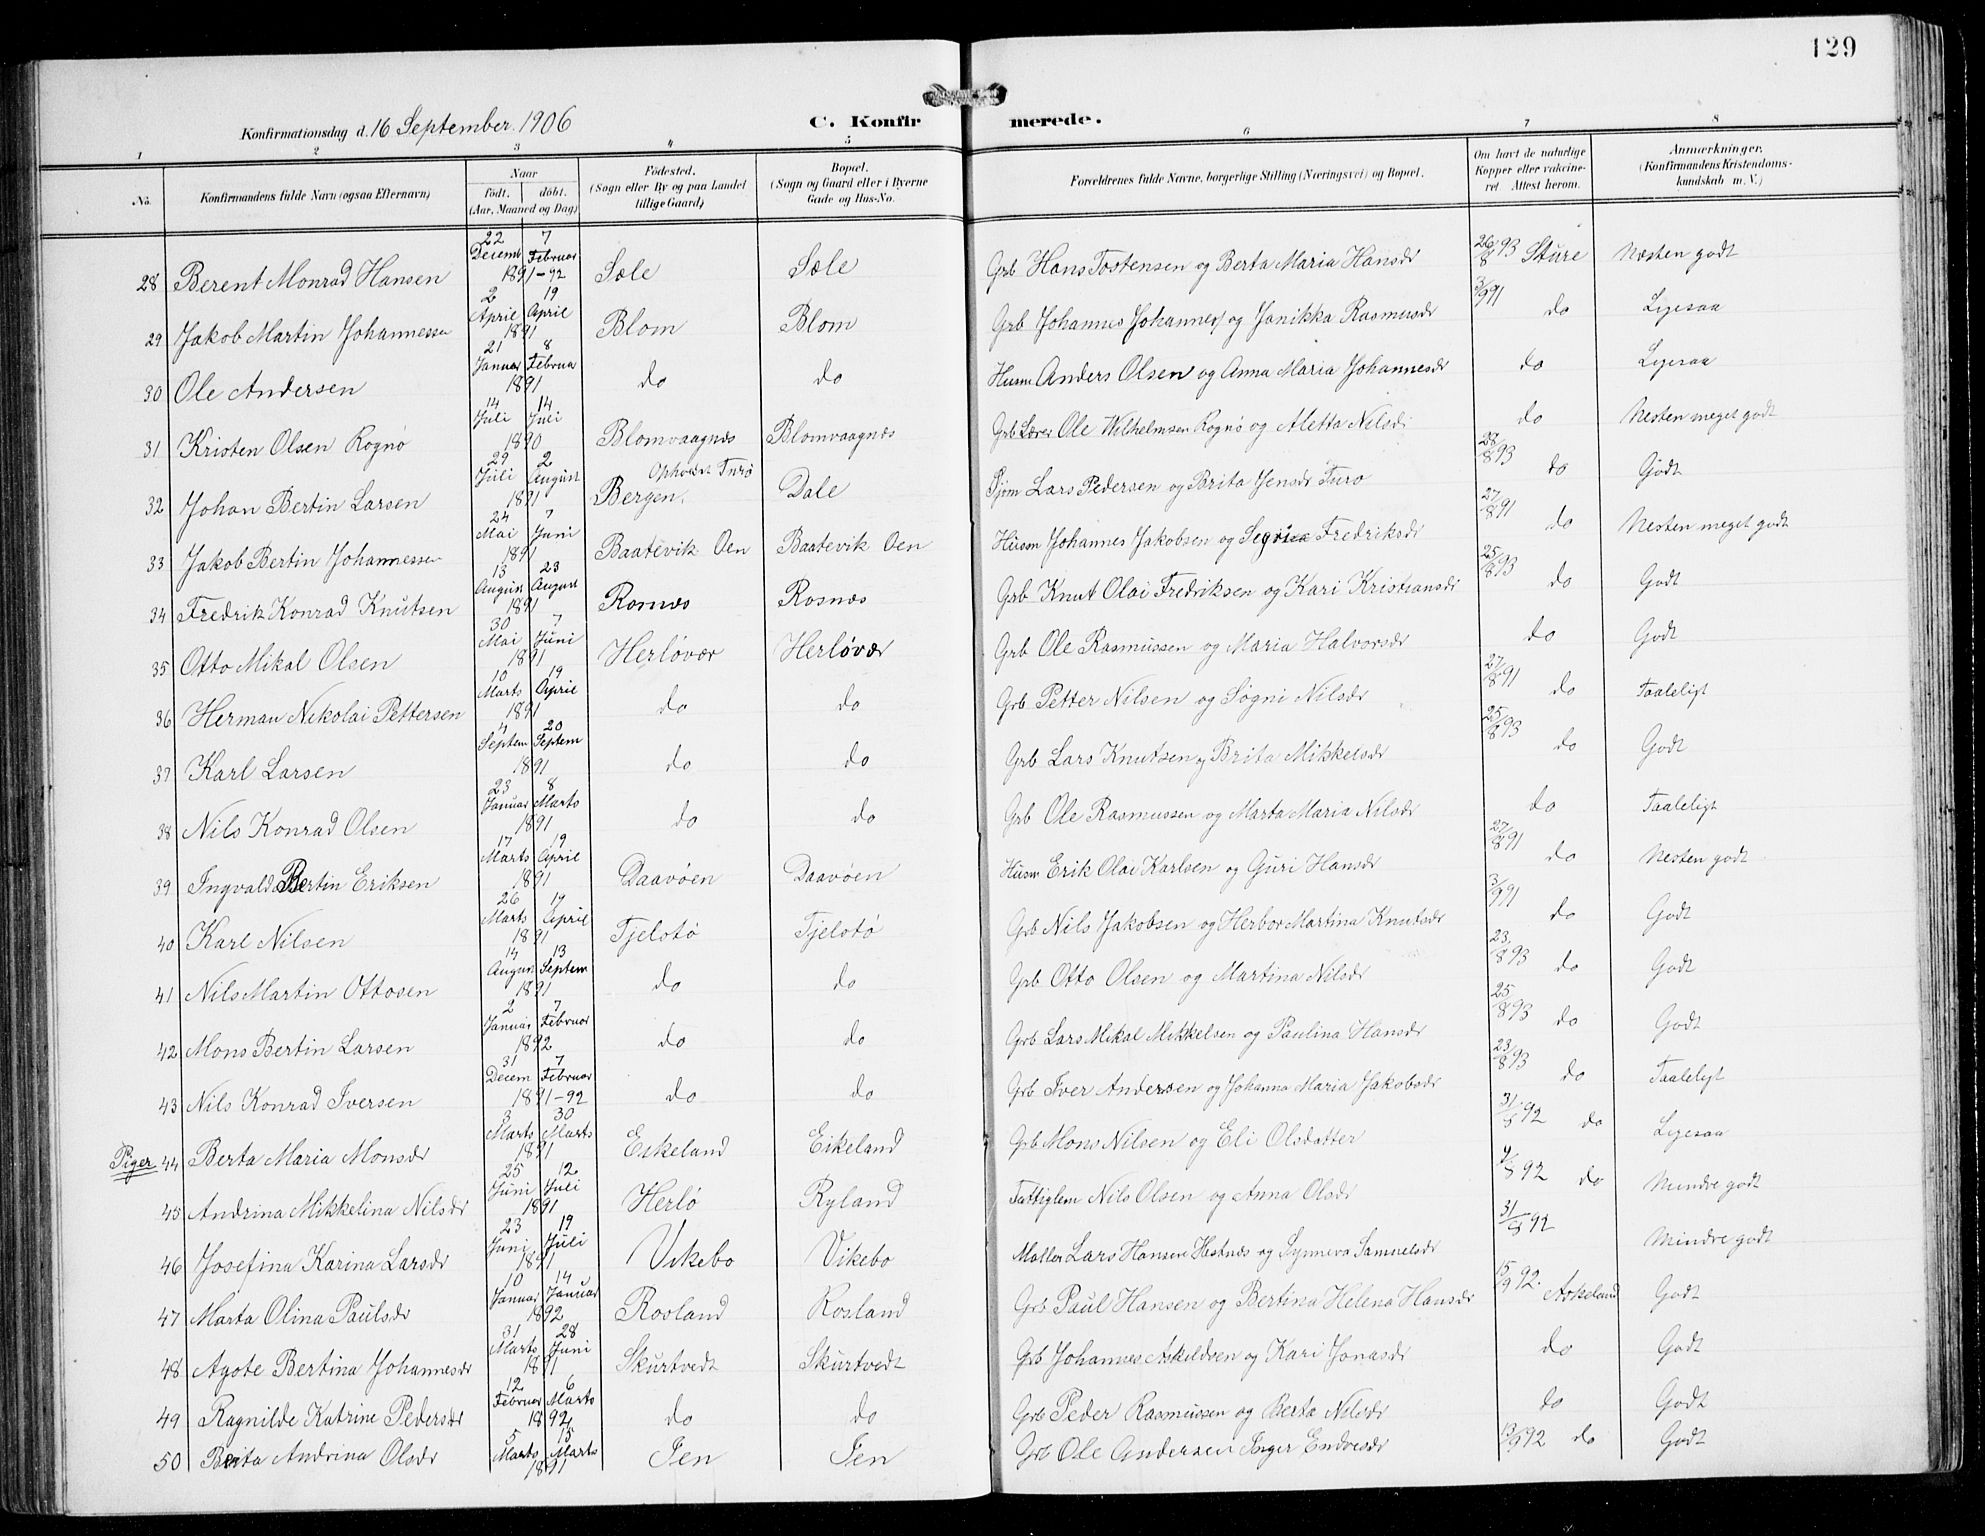 129
Konfirmationsdag d. 16 September 1906
C. Konfirmerede.
1 2 3 4 5 6 7 8
No. Konfirmandens fulde Navn (ogsaa Efternavn) Naar født. døbt. (Aar, Maaned og Dag) Fødested. (Sogn eller By og paa Landet tillige Gaard) Bopæl. (Sogn og Gaard eller i Byerne Gade og Hus-No. Forældrenes fulde Navne, borgerlige Stilling (Næringsvei) og Bopæl. Om havt de naturlige Kopper eller vakcineret Attest herom. Anmærkninger. (Konfirmandens Kristendomskundskab m. V.)
28 Berent Monrad Hansen 22 Decemb 7 Februar 1891-92 Sæle Sæle Grb Hans Tostensen og Berta Maria Hansdr 26/8 93 Sture Næsten godt
29 Jakob Martin Johannessen 2 April 19 April 1891 Blom Blom Grb Johannes Johannes og Janikka Rasmusdr 3/9 91 do Ligesaa
30 Ole Andersen 21 Januar 8 Februa 1891 do do Husm Anders Olsen og Anna Maria Johannesdr do Ligesaa
31 Kristen Olsen Rognø 14 Juli 14 Juli 1890 Blomvaagnæs Blomvaagnæs Grb Lærer Ole Wilhelmsen Rognø og Aletta Nilsdr do Nesten meget godt
32 Johan Bertin Larsen 29 Juli 2 August 1891 Bergen. Opholdt Turø Dale Sjøm Lars Pedersen og Brita Jensdr Turø 28/8 93 do Godt
33 Jakob Bertin Johannessen 24 Mai 7 Juni 1891 Baatevik Oen Baatevik Oen Husm Johannes Jakobsen og Fredriksdr 27/8 91 do Nesten meget godt
34 Fredrik Konrad Knutsen 13 August 23 August 1891 Rosnæs Rosnæs Grb Knut Olai Fredriksen og Kari Kristiansdr 25/8 93 do Godt
35 Otto Mikal Olsen 30 Mai 7 Juni 1891 Herløvær Herløvær Grb Ole Rasmussen og Maria Halvorsdr do Godt
36 Herman Nikolai Pettersen 10 Marts 19 April 1891 do do Grb Petter Nilsen og Søgni Nilsdr 27/8 91 do Taaleligt
37 Karl Larsen 4 Septem 20 Septem 1891 do do Grb Lars Knutsen og Brita Mikkelsdr 25/8 93 do Godt
38 Nils Konrad Olsen 23 Januar 8 Marts 1891 do do Grb Ole Rasmussen og Marta Maria Nilsdr do Taaleligt
39 Ingvald Bertin Eriksen 17 Marts 19 April 1891 Daavøen Daavøen Husm Erik Olai Karlsen og Guri Hansdr 27/8 91 do Nesten godt
40 Karl Nilsen 26 Marts 19 April 1891 Tjelstø Tjelstø Grb Nils Jakobsen og Herbor Martina Knutsdr 3/9 91 do Godt
41 Nils Martin Ottosen 14 Augun 13 Septem 1891 do do Grb Otto Olsen og Martina Nilsdr 23/8 93 do Godt
42 Mons Bertin Larsen 2 Januar 7 Februar 1892 do do Grb Lars Mikal Mikkelsen og Paulina Hansdr 25/8 93 do Godt
43 Nils Konrad Iversen 31 Decem 7 Februar 1891-92 do do Grb Iver Andersen og Johanna Maria Jakobsdr 23/8 93 do Taaleligt
Piger 44 Berta Maria Monsdr 3 Marts 30 Marts 1891 Eikeland Eikeland Grb Mons Nilsen og Eli Olsdatter 31/8 92 do Ligesaa
45 Andrina Mikkelina Nilsdr 25 Juni 12 Juli 1891 Herlø Ryland Fattiglem Nils Olsen og Anna Olsdr 4/8 92 do Mindre godt
46 Josefina Karina Larsdr 23 Juni 19 Juli 1891 Vikebo Vikebo Møller Lars Hansen Hestnæs og Synneva Samuelsdr 31/8 92 Mindre godt
47 Marta Olina Paulsdr 10 Januar 14 Januar 1892 Rosland Rosland Grb Paul Hansen og Bertina Helena Hansdr 15/9 92. Askeland Godt
48 Agote Bertina Johannesdr 31 Marts 28 Juni 1891 Skurtvedt Skurtvedt Grb Johannes Askeldsen og Kari Jonasdr do Godt
49 Ragnilde Katrine Pedersdr 12 Februar 6 Marts 1892 do do Grb Peder Rasmussen og Berta Nilsdr do Godt
50 Berita Andrina Olsdr 5 Marts 15 Marts 1891 Fen Fen Grb Ole Andersen Inger Endresdr 13/9 92 do Godt